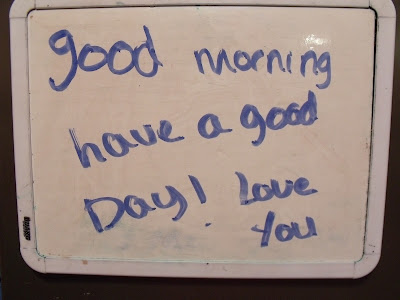 good morning
have a good
Day! Love
You